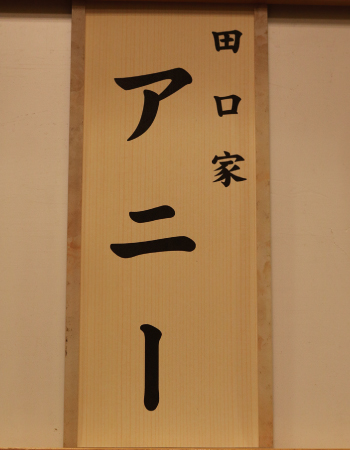 田口家
アニー